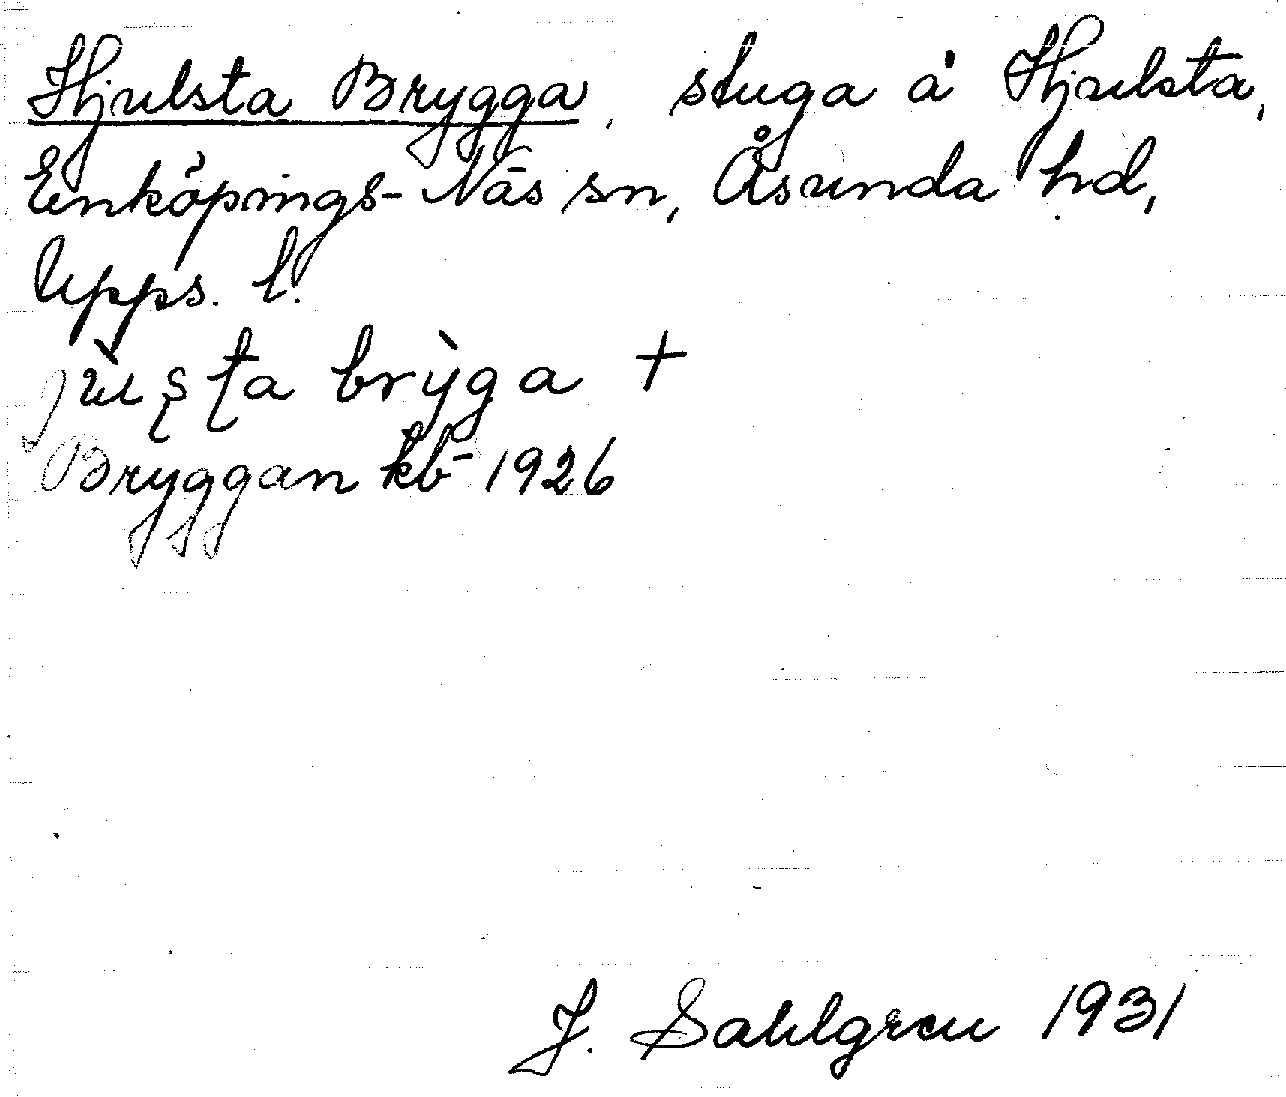 Hjulsta Brygga, stuga å Hjulsta,
Enköpings-Näs sn, Åsunda hd,
Upps. l.
jùʂʈa brỳga +
Bryggan kb 1926
J. Sahlgren 1931